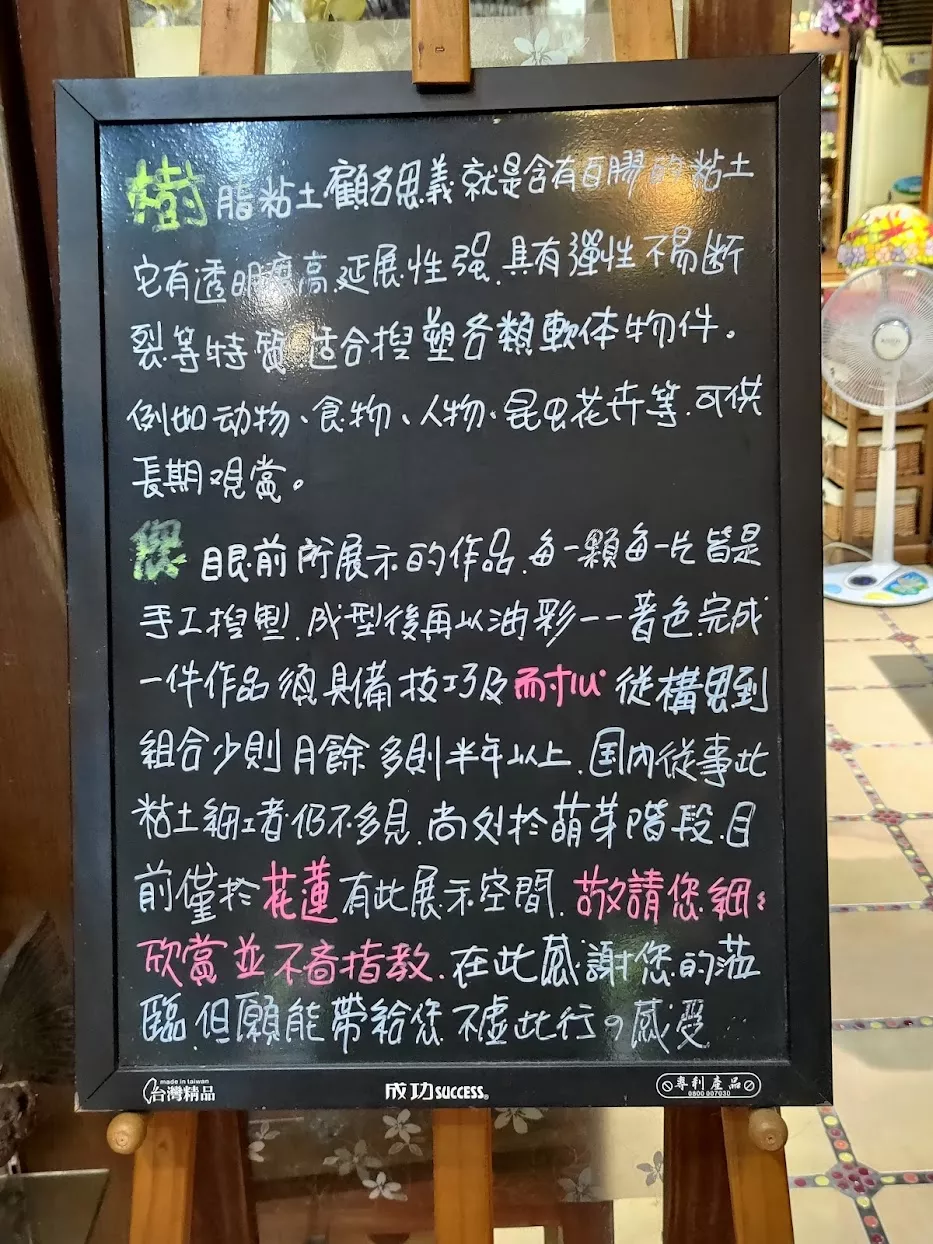 樹脂粘土顧名思義就是含有白膠的粘土
它有透明度高.延展性强.具有彈性不易断
裂等特質.适合揑塑各類軟体物件。
例如动物、食物、人物、昆虫花卉等.可供
長期观賞。
您眼前所展示的作品.每一顆每一片皆是
手工揑塑.成型後再以油彩一一著色.完成
一件作品須具備技巧及耐心從構思到
組合少則月餘多則半年以上.国內從事此
粘土細工者仍不多見.尚处於萌芽階段.目
前僅於花蓮有此展示空間.敬請您細々
欣賞並不吝指教.在此感謝您的蒞
臨.但願能帶給您不虛此行の感受
made in taiwan
台灣精品
成功SUCCESS®
專利產品
0800 007030